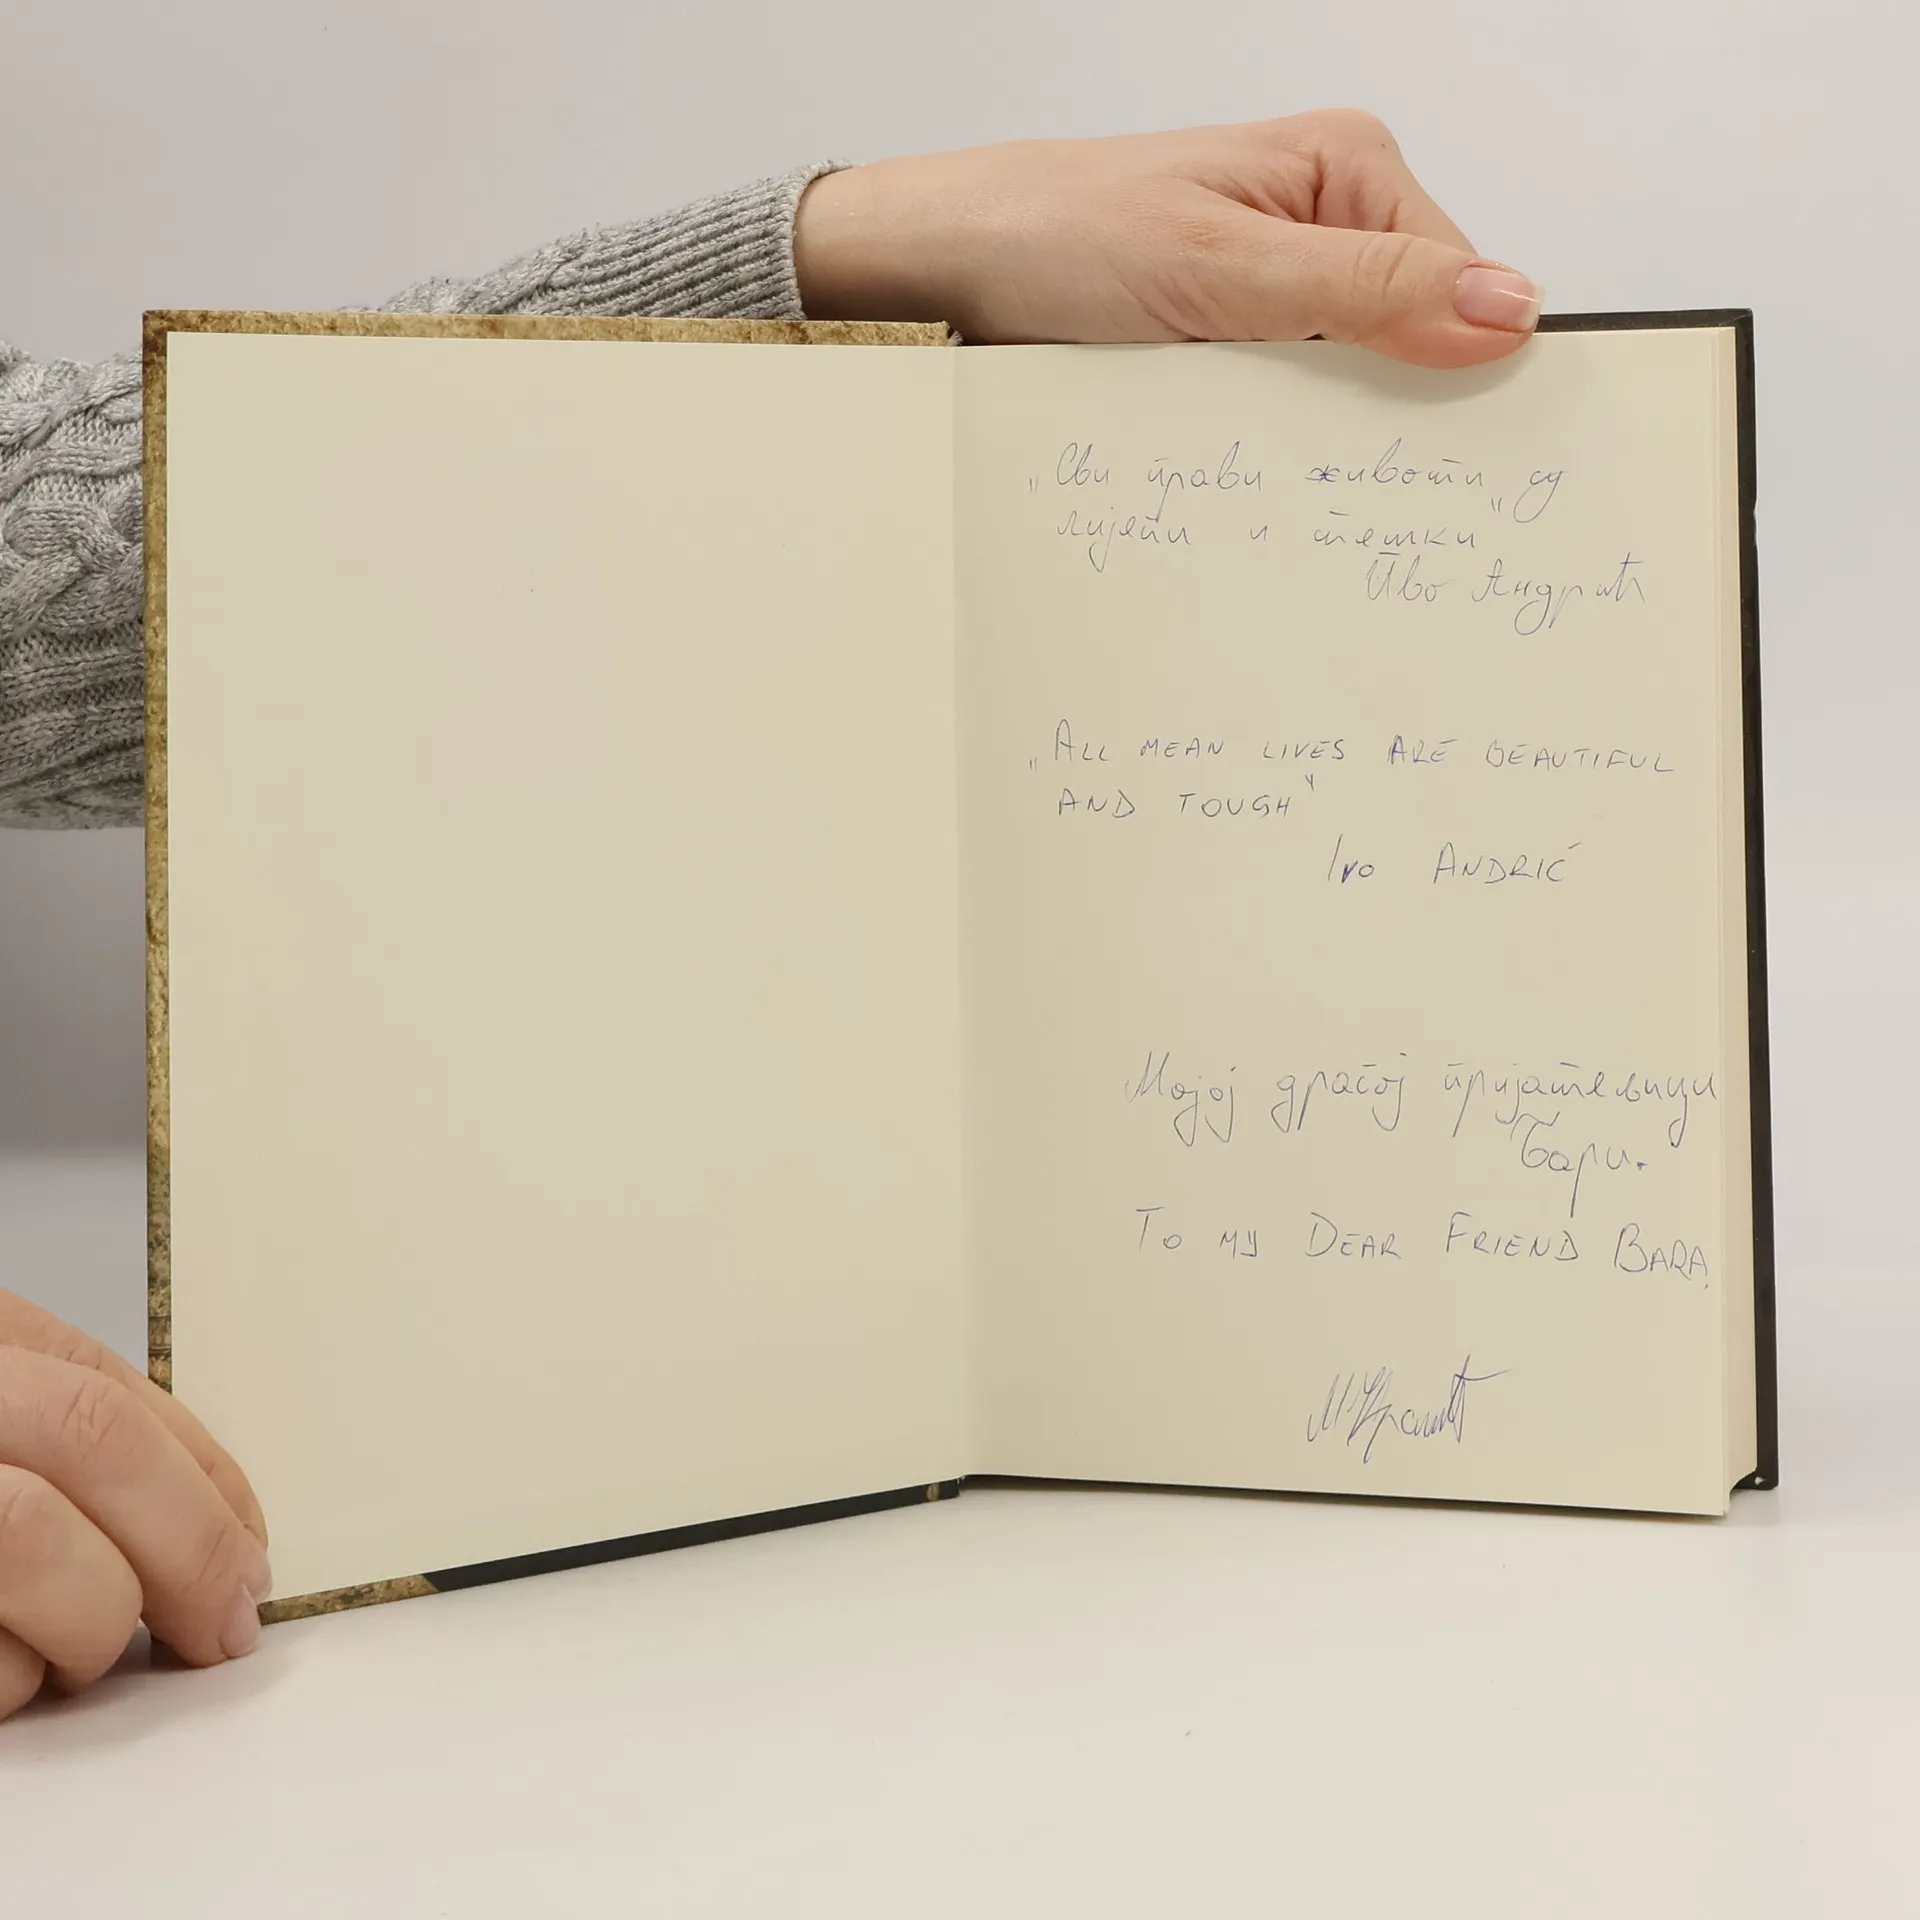 „Сви прави животи су
лијепи и тешки“
Иво Андрић
„ALL MEAN LIVES ARE BEAUTIFUL
AND TOUGH“
IVO ANDRIĆ
Мојој драгој пријатељици
Бари.
TO MY DEAR FRIEND BARA.